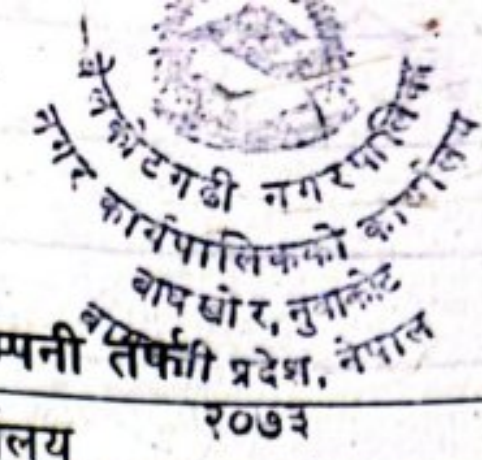 बेलकोटगढी नगरपालिका
नगर कार्यपालिकाको कार्यालय
बाघखोर, नुवाकोट
बागमती प्रदेश, नेपाल
म्पनी तर्फ
२०७३
लय